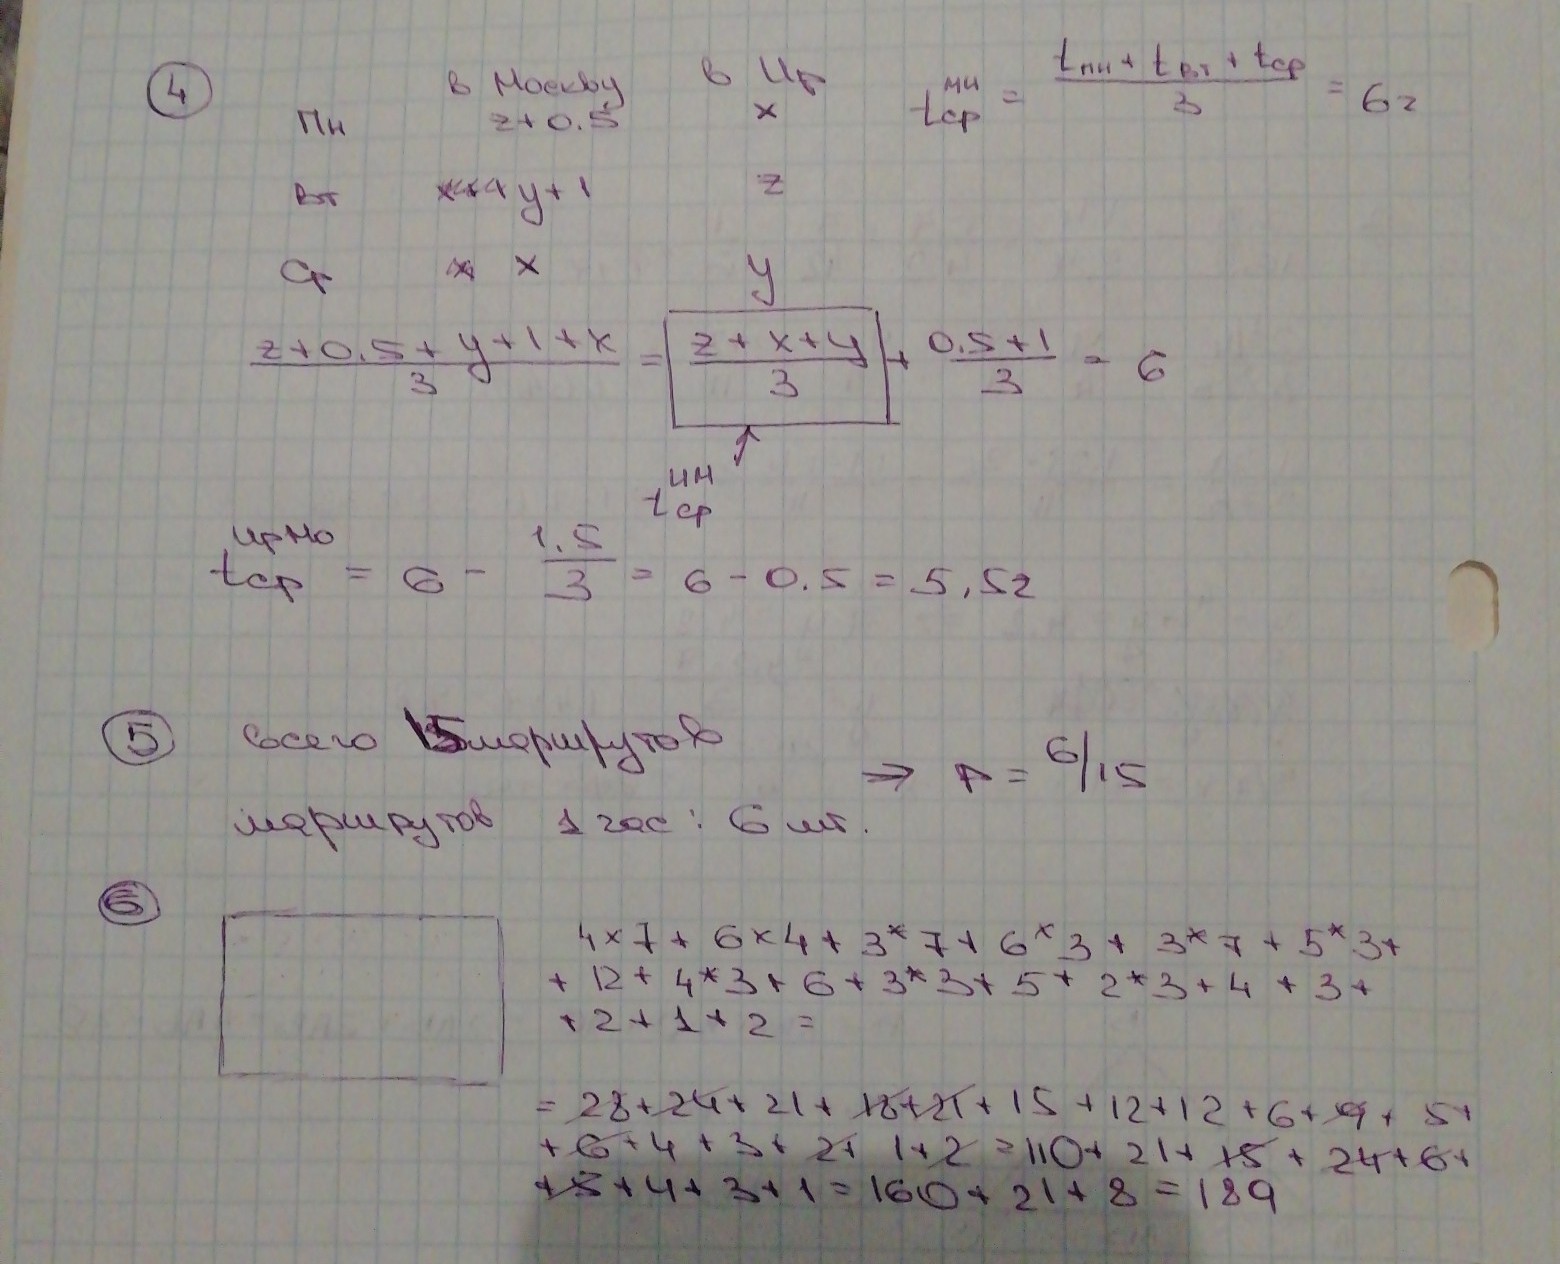 4
в Москву в Ир
Пн z+0.5 x
tср^мн = (tпн + tвт + tср)/3 = 6г
Вт y+1 z
Ср x y
(z+0.5+y+1+x)/3 = (z+x+y)/3 + (0.5+1)/3 = 6
tср^ин
tср^ирно = 6 - 1.5/3 = 6 - 0.5 = 5,5г
5 всего 15 маршрутов
⇒ P = 6/15
маршрутов 1 час: 6 шт.
6
4×7 + 6×4 + 3*7 + 6*3 + 3*7 + 5*3+
+ 12 + 4*3 + 6 + 3*3 + 5 + 2*3 + 4 + 3 +
+ 2 + 1 + 2 =
= 28+24+21+18+21+15+12+12+6+9+5+
+6+4+3+2+1+2 = 110+21+15+24+6+
+5+4+3+1 = 160+21+8 = 189